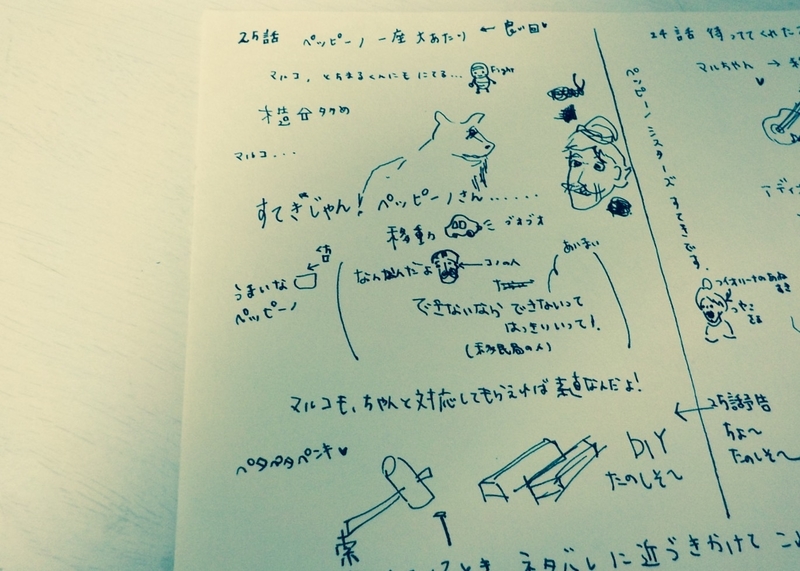 25話 ペッピーノ一座大あたり ← 良い回♥
マルコ、とちまるくんにもにてる… Fight
木造分タタめ
マルコ...
すてきじゃん! ペッピーノさん......
移動 ブオブオ
うまいな
ペッピーノ
なんなんだよ ← コノ人
あいまい
できないなら できないって
はっきりいって!
(移民局の人)
マルコも、ちゃんと対応してもらえれば素直なんだよ!
ペタペタペンキ♥
DIY
たのしそ〜
24話 待っててくれた
マルちゃん →
ペッピーノ ミスターズ すてきです。
アディオ
フィオリーナの
つやこ
25話予告
ちょ〜
たのしそ〜
とき ネタバレに近づきかけて